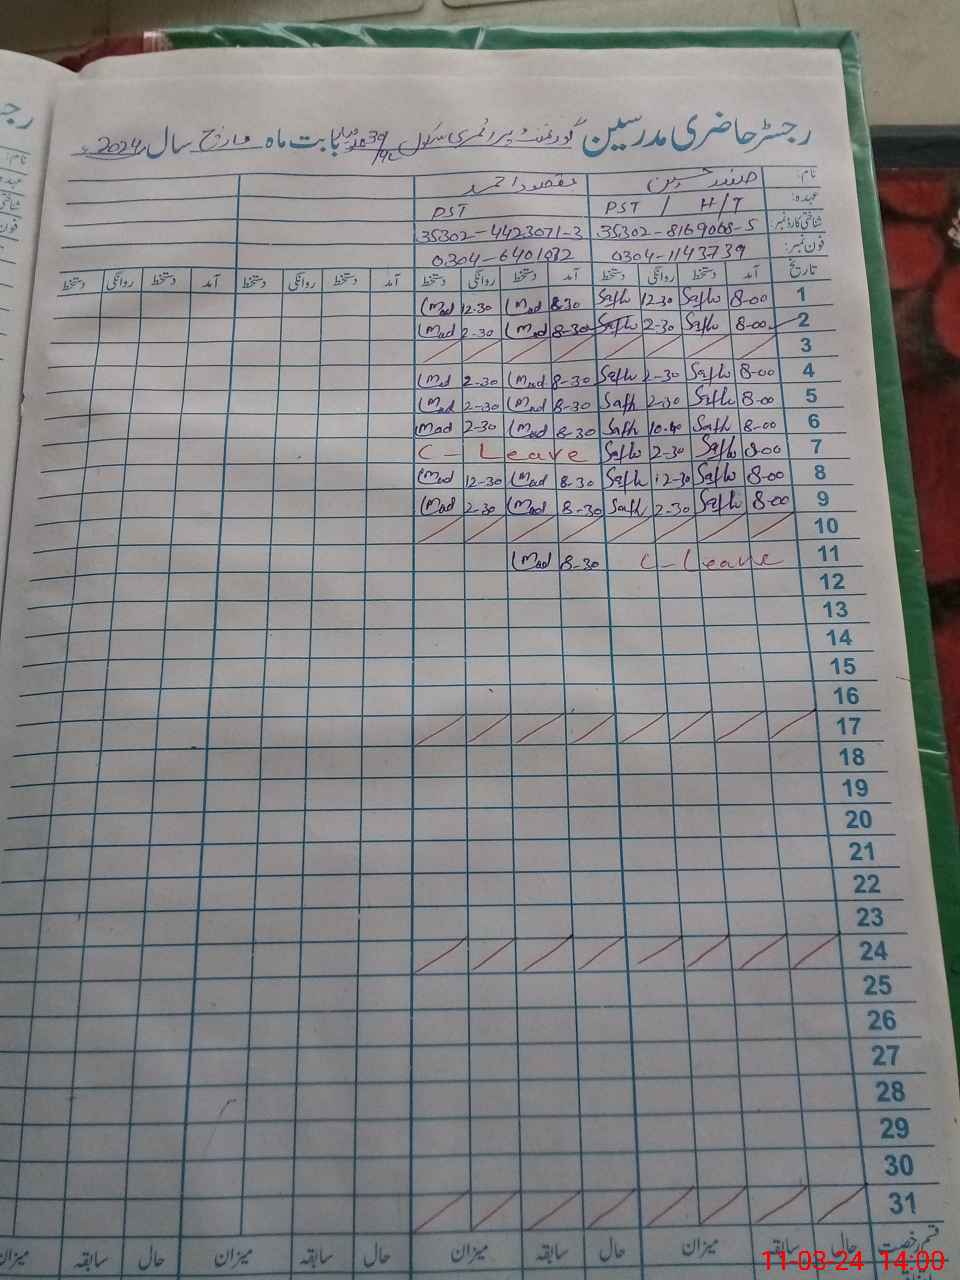 رجسٹر حاضری مدرسین گورنمنٹ پرائمری سکول بابت ماہ مارچ سال 2024ء
نام: صفدر حسین مقصود احمد
عہدہ: PST / H/T PST
شناختی کارڈ نمبر: 35302-8169068-5 35302-4423071-3
فون نمبر: 0304-1143739 0304-6401082
تاریخ آمد دستخط روانگی دستخط آمد دستخط روانگی دستخط آمد دستخط روانگی دستخط آمد دستخط روانگی دستخط
1 8-00 12-30 8-30 12-30
2 8-00 2-30 8-30 2-30
3
4 8-00 2-30 8-30 2-30
5 8-00 2-30 8-30 2-30
6 8-00 10-40 8-30 2-30
7 8-00 2-30 C-Leave
8 8-00 12-30 8-30 12-30
9 8-00 2-30 8-30 2-30
10
11 C-Leave 8-30
12
13
14
15
16
17
18
19
20
21
22
23
24
25
26
27
28
29
30
31
قسم رخصت حال سابقہ میزان حال سابقہ میزان حال سابقہ میزان حال سابقہ میزان
11-03-24 14:00